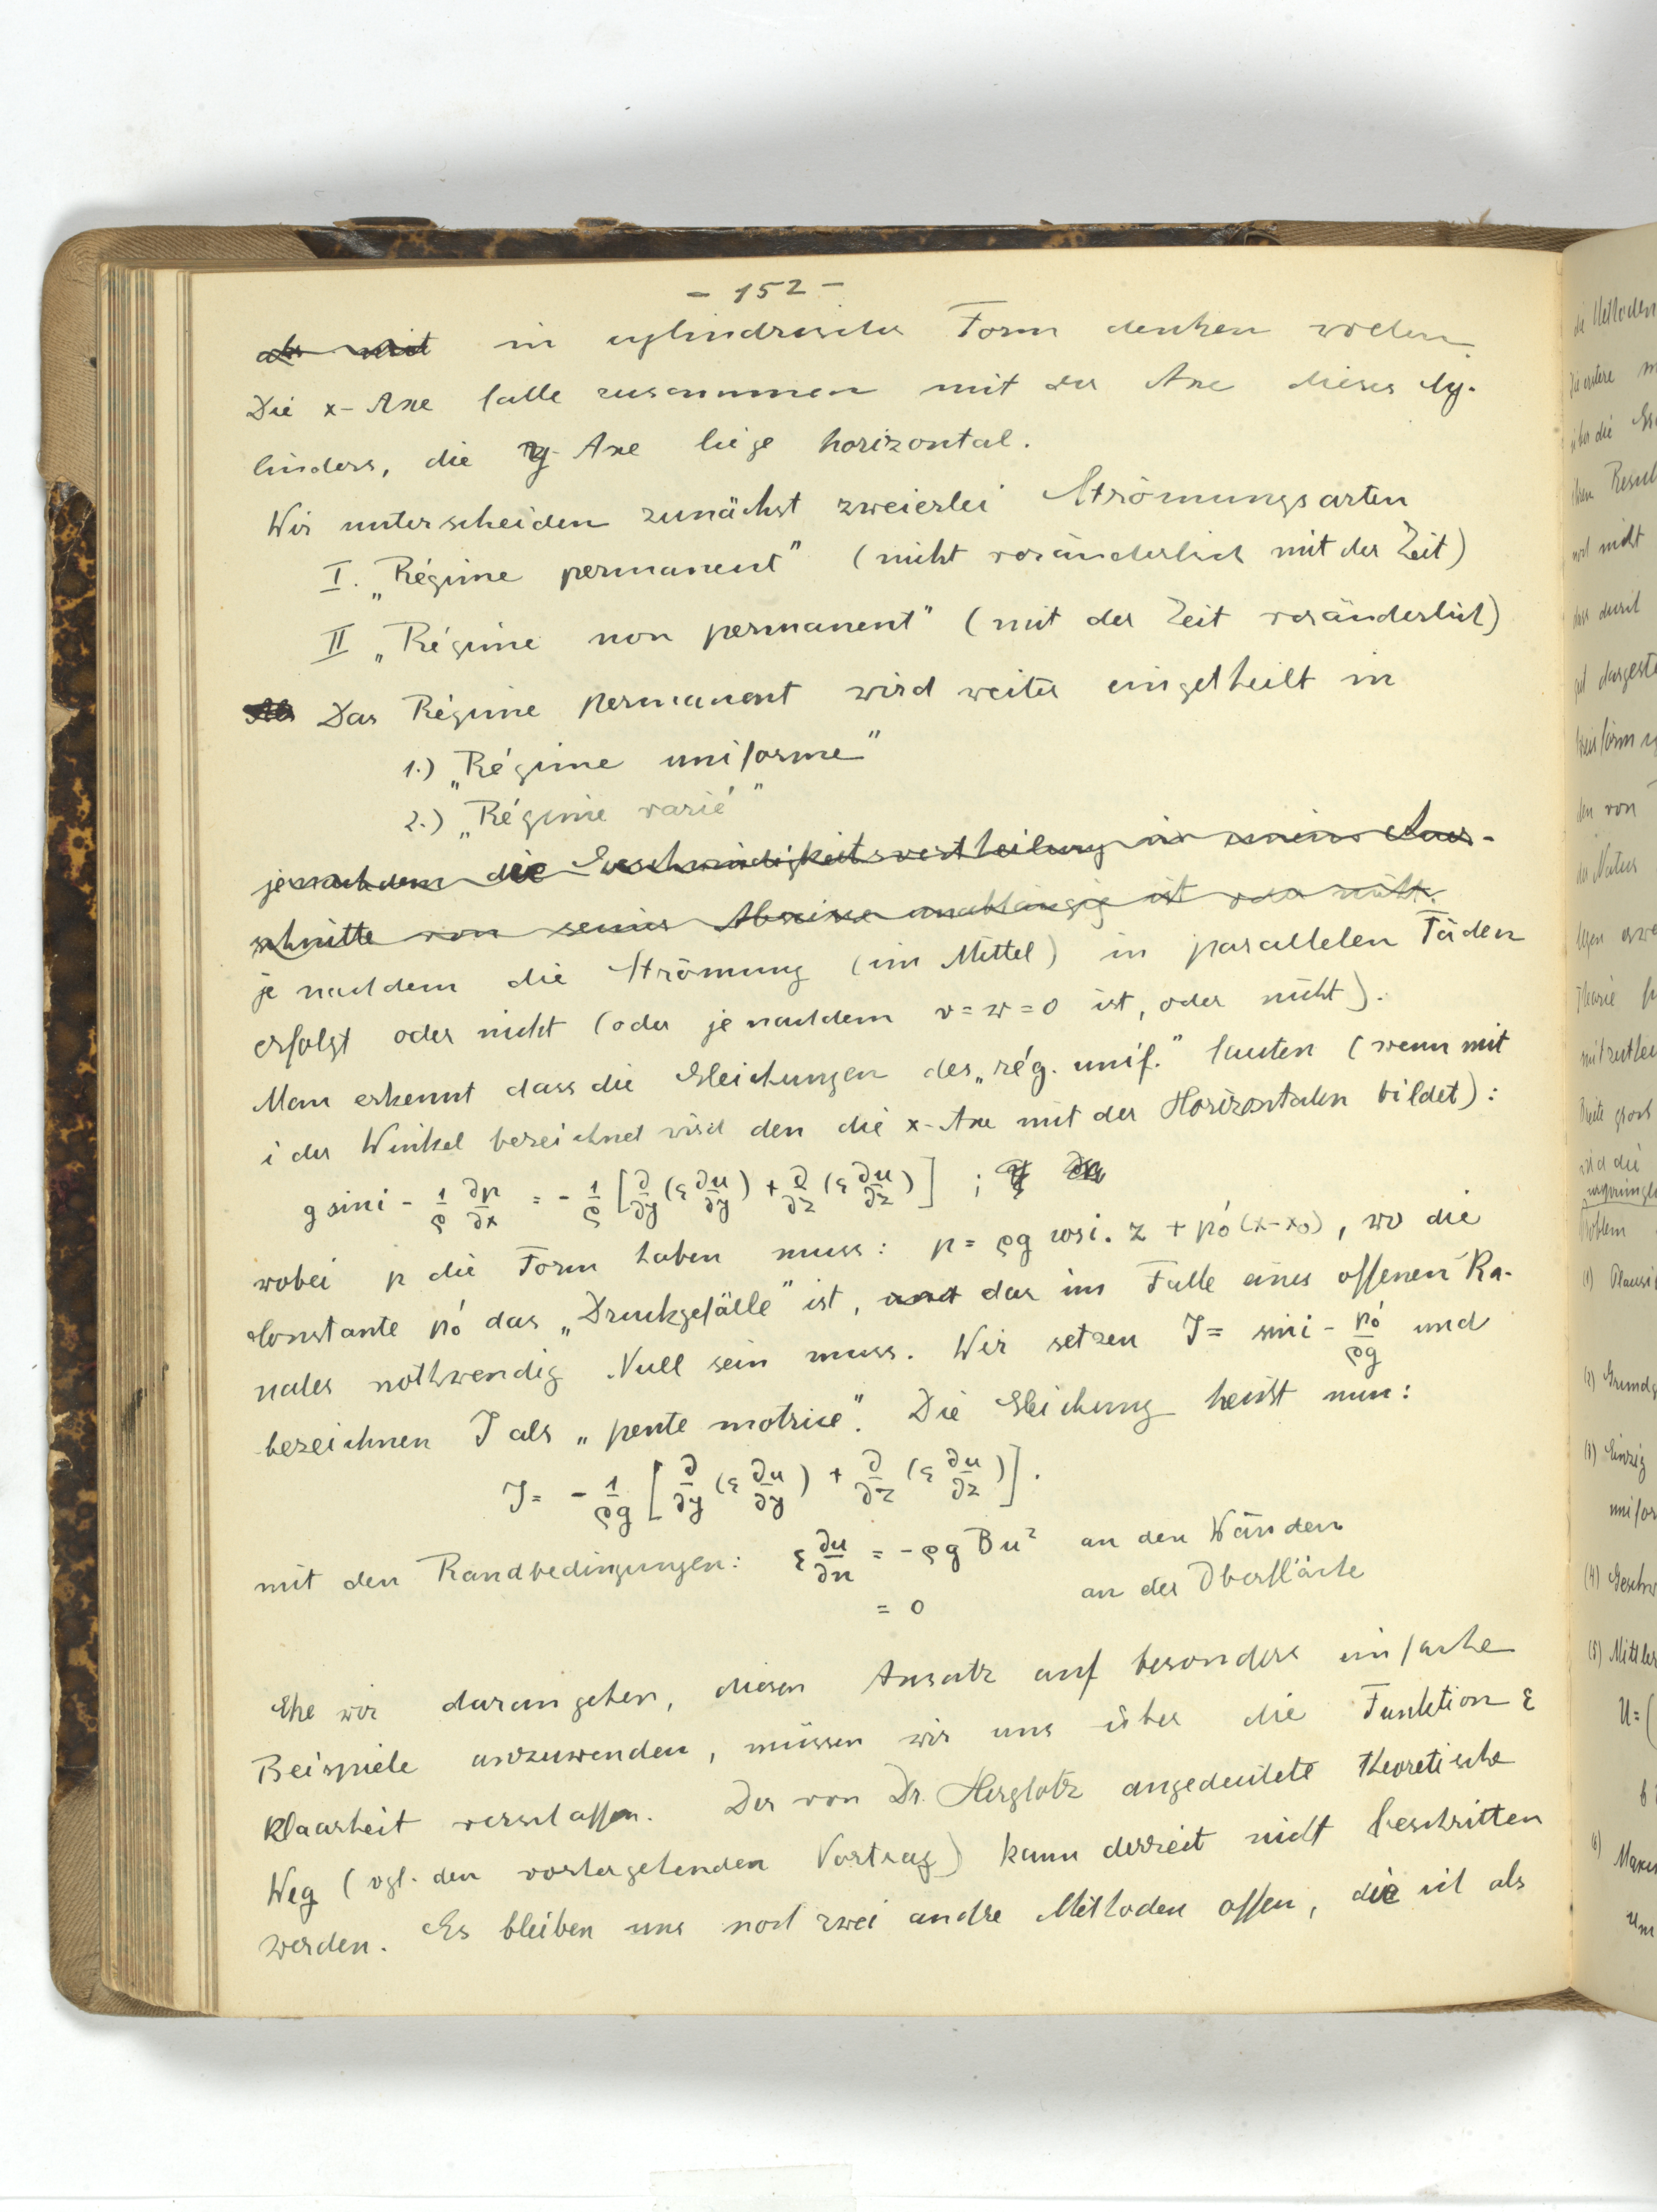 - 152 -
in cylindrischer Form denken wollen.
Die x-Axe falle zusammen mit der Axe dieses Cy-
linders, die y-Axe liege horizontal.
Wir unterscheiden zunächst zweierlei Strömungsarten
I. „Régime permanent" (nicht veränderlich mit der Zeit)
II „Régime non permanent" (mit der Zeit veränderlich)
Das Régime permanent wird weiter eingetheilt in
1.) „Régime uniforme"
2.) „Régime varié"
jenachdem die Geschwindigkeitsvertheilung in einem Quer-
schnitte von seiner Abscisse unabhängig ist oder nicht.
je nachdem die Strömung (im Mittel) in parallelen Fäden
erfolgt oder nicht (oder je nachdem v=w=0 ist, oder nicht).
Man erkennt dass die Gleichungen des „rég. unif." lauten (wenn mit
i der Winkel bezeichnet wird den die x-Axe mit der Horizontalen bildet):
g sin i - 1/ρ ∂p/∂x = - 1/ρ [∂/∂y (ε ∂u/∂y) + ∂/∂z (ε ∂u/∂z)] ;
wobei p die Form haben muss: p = ρg cos i . z + p₀'(x-x₀), wo die
Constante p₀' das „Druckgefälle" ist, das im Falle eines offenen Ka-
nales nothwendig Null sein muss. Wir setzen J = sin i - p₀'/ρg und
bezeichnen J als „pente motrice". Die Gleichung heisst nun:
J = - 1/ρg [∂/∂y (ε ∂u/∂y) + ∂/∂z (ε ∂u/∂z)].
mit den Randbedingungen: ε ∂u/∂n = - ρg B u² an den Wänden
= 0 an der Oberfläche
Ehe wir darangehen, diesen Ansatz auf besonders einfache
Beispiele anzuwenden, müssen wir uns über die Funktion ε
Klaarheit verschaffen. Der von Dr. Herglotz angedeutete theoretische
Weg (vgl. den vorhergehenden Vortrag) kann derzeit nicht beschritten
werden. Es bleiben uns noch zwei andre Methoden offen, die ich als